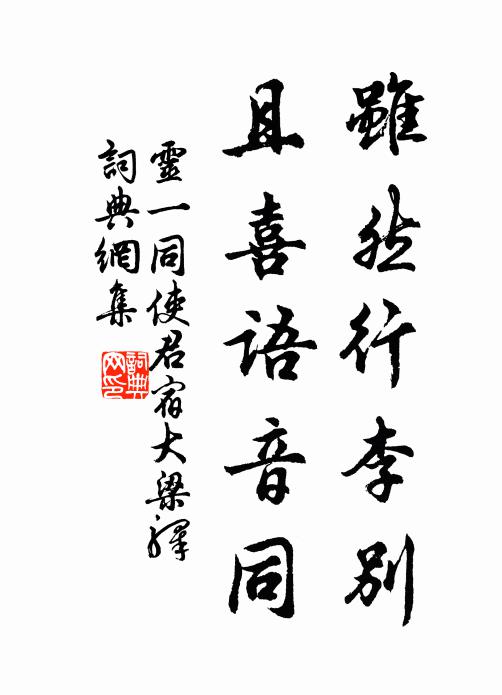 雖然行李別
且喜語音同
靈一同使君宿大梁驛
詞典網集
詞典
网印